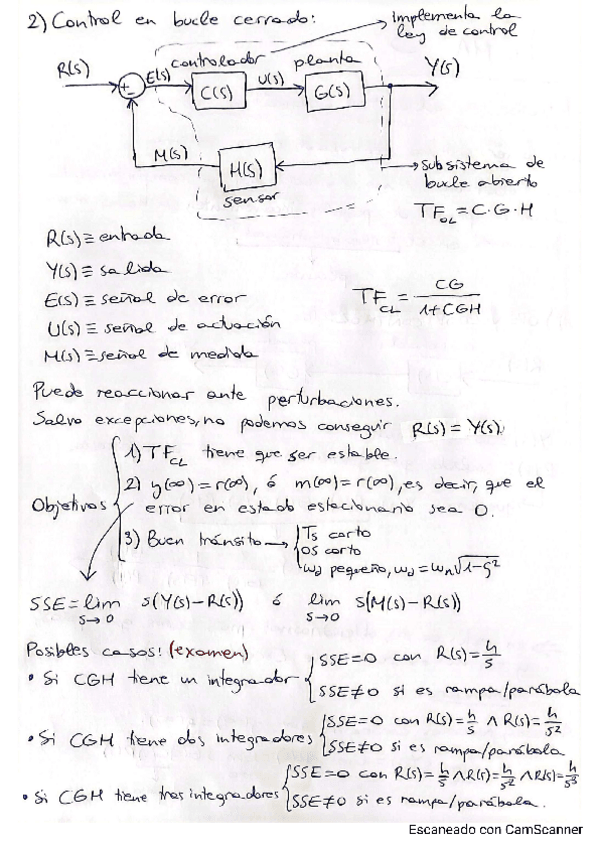 2) Control en bucle cerrado:
implementa la
ley de control
controlador
planta
R(s)
+
-
E(s)
C(s)
U(s)
G(s)
Y(s)
M(s)
H(s)
sensor
subsistema de
bucle abierto
TF_OL = C·G·H
R(s) ≡ entrada
Y(s) ≡ salida
E(s) ≡ señal de error
U(s) ≡ señal de actuación
M(s) ≡ señal de medida
TF_CL = CG / 1+CGH
Puede reaccionar ante perturbaciones.
Salvo excepciones, no podemos conseguir R(s) = Y(s).
Objetivos
1) TF_CL tiene que ser estable.
2) y(∞)=r(∞), ó m(∞)=r(∞), es decir, que el
error en estado estacionario sea 0.
3) Buen tránsito →
Ts corto
OS corto
ωd pequeño, ωd = ωn√1-ζ²
SSE = lim s→0 s(Y(s)-R(s)) ó lim s→0 s(M(s)-R(s))
Posibles casos: (examen)
• Si CGH tiene un integrador
SSE=0 con R(s)= h/s
SSE≠0 si es rampa/parábola
• Si CGH tiene dos integradores
SSE=0 con R(s)= h/s ∧ R(s)= h/s²
SSE≠0 si es rampa/parábola
• Si CGH tiene tres integradores
SSE=0 con R(s)= h/s ∧ R(s)= h/s² ∧ R(s)= h/s³
SSE≠0 si es rampa/parábola.
Escaneado con CamScanner